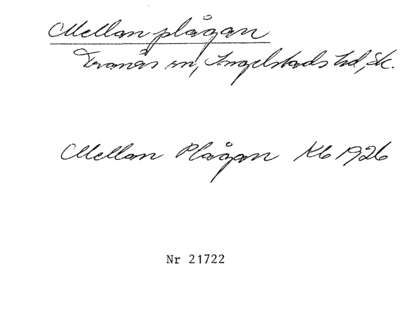 Mellan plågan
Tranås sn, Ingelstads hd, Sk.
Mellan Plågan Kb 1926
Nr 21722